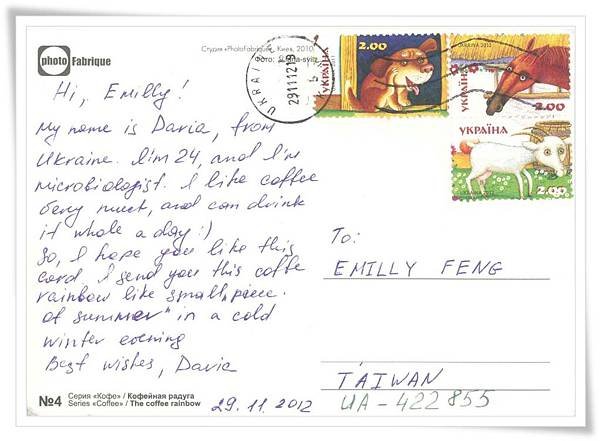 photo Fabrique
Студия «PhotoFabrique», Киев, 2010.
Hi, Emilly!
My name is Daria, from
Ukraine. I'm 24, and I'm
microbiologist. I like coffee
very much, and can drink
it whole a day :)
So, I hope you like this
card. I send you this coffe
rainbow like "small piece
of summer" in a cold
winter evening
Best wishes, Daria
29.11.2012
№4
Серия «Кофе» / Кофейная радуга
Series «Coffee» / The coffee rainbow
UKRAINE
291112
2.00
УКРАЇНА
UKRAINA 2012
2.00
УКРАЇНА
УКРАЇНА
UKRAINA 2012
2.00
To:
EMILLY FENG
TAIWAN
UA - 422855